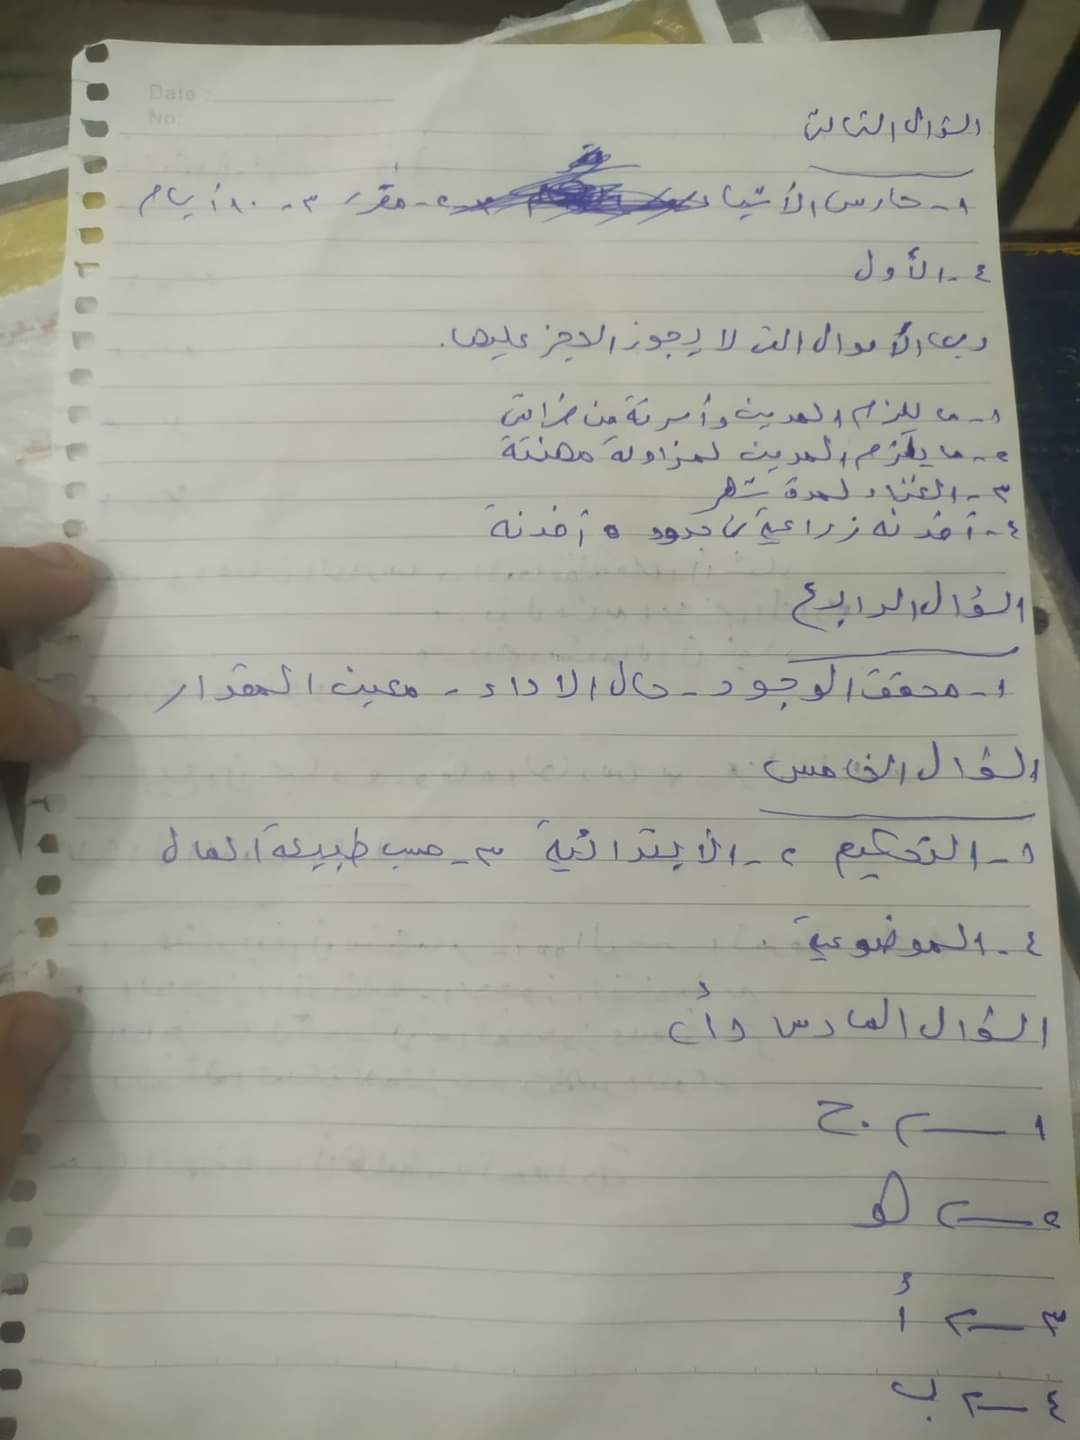 Date :
No:
السؤال الثالث
١- حارس الأشياء ٢- مقرر ٣- ١٠ أيام
٤- الأول
(ب) الأموال التى لا يجوز الحجز عليها.
١- ما يلزم المدين وأسرتة من
٢- ما يلزم المدين لمزاولة مهنتة
٣- الغذاء لمدة شهر
٤- أفدنه زراعية فى حدود ٥ أفدنة
السؤال الرابع
١- محقق الوجود - حال الاداء - معين المقدار
السؤال الخامس
١- التحكيم ٢- الابتدائية ٣- حسب طبيعة المال
٤- الموضوعية
السؤال السادس (أ)
١ ـــ ج
٢ ـــ هـ
٣ ـــ أ
٤ ـــ ب